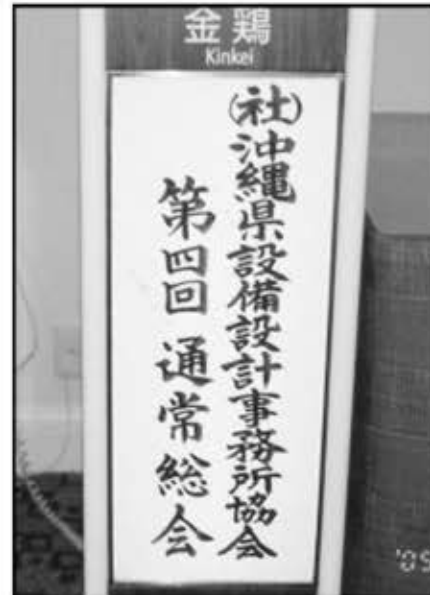 金鶏
Kinkei
(社)沖縄県設備設計事務所協会
第四回 通常総会